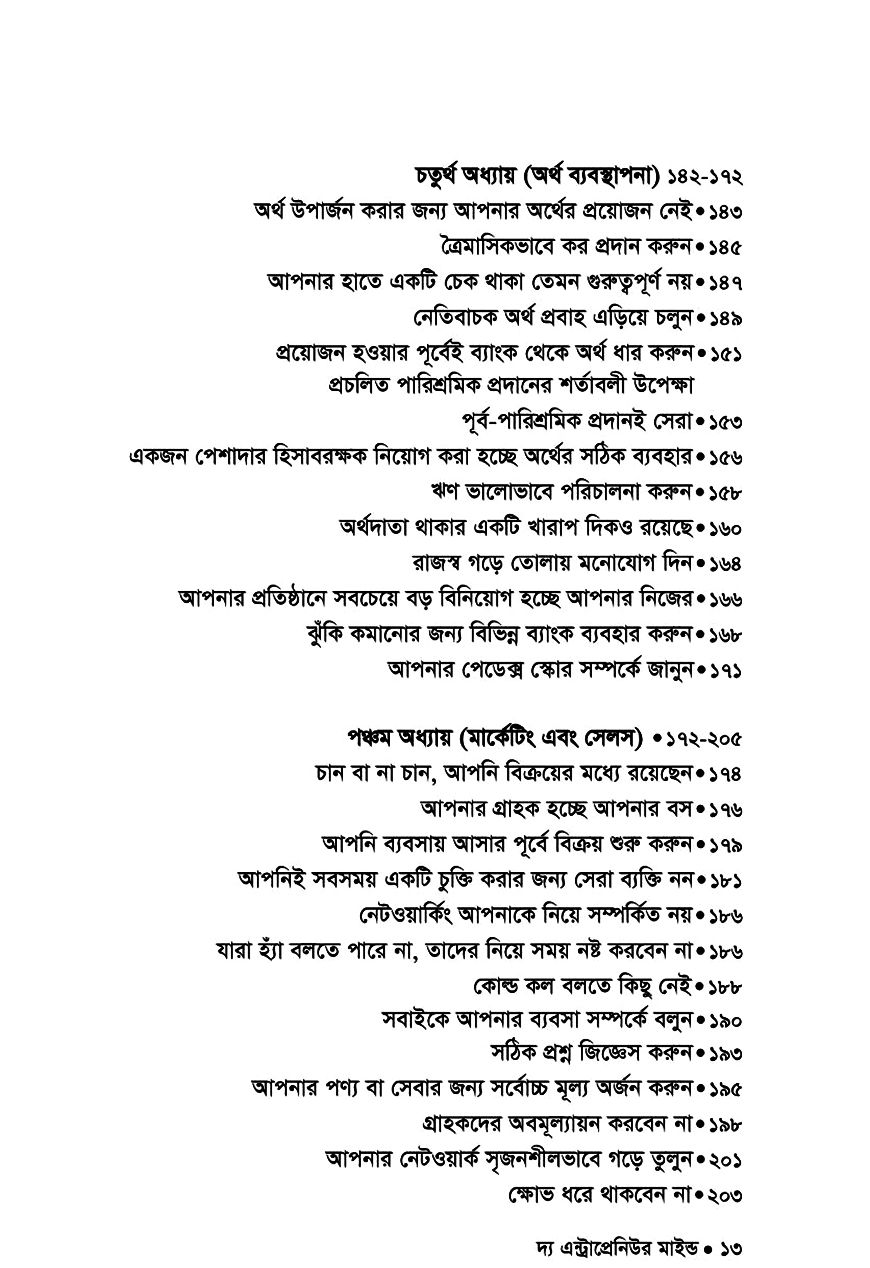 চতুর্থ অধ্যায় (অর্থ ব্যবস্থাপনা) ১৪২-১৭২
অর্থ উপার্জন করার জন্য আপনার অর্থের প্রয়োজন নেই•১৪৩
ত্রৈমাসিকভাবে কর প্রদান করুন•১৪৫
আপনার হাতে একটি চেক থাকা তেমন গুরুত্বপূর্ণ নয়•১৪৭
নেতিবাচক অর্থ প্রবাহ এড়িয়ে চলুন•১৪৯
প্রয়োজন হওয়ার পূর্বেই ব্যাংক থেকে অর্থ ধার করুন•১৫১
প্রচলিত পারিশ্রমিক প্রদানের শর্তাবলী উপেক্ষা
পূর্ব-পারিশ্রমিক প্রদানই সেরা•১৫৩
একজন পেশাদার হিসাবরক্ষক নিয়োগ করা হচ্ছে অর্থের সঠিক ব্যবহার•১৫৬
ঋণ ভালোভাবে পরিচালনা করুন•১৫৮
অর্থদাতা থাকার একটি খারাপ দিকও রয়েছে•১৬০
রাজস্ব গড়ে তোলায় মনোযোগ দিন•১৬৪
আপনার প্রতিষ্ঠানে সবচেয়ে বড় বিনিয়োগ হচ্ছে আপনার নিজের•১৬৬
ঝুঁকি কমানোর জন্য বিভিন্ন ব্যাংক ব্যবহার করুন•১৬৮
আপনার পেডেক্স স্কোর সম্পর্কে জানুন•১৭১
পঞ্চম অধ্যায় (মার্কেটিং এবং সেলস) •১৭২-২০৫
চান বা না চান, আপনি বিক্রয়ের মধ্যে রয়েছেন•১৭৪
আপনার গ্রাহক হচ্ছে আপনার বস•১৭৬
আপনি ব্যবসায় আসার পূর্বে বিক্রয় শুরু করুন•১৭৯
আপনিই সবসময় একটি চুক্তি করার জন্য সেরা ব্যক্তি নন•১৮১
নেটওয়ার্কিং আপনাকে নিয়ে সম্পর্কিত নয়•১৮৬
যারা হ্যাঁ বলতে পারে না, তাদের নিয়ে সময় নষ্ট করবেন না•১৮৬
কোল্ড কল বলতে কিছু নেই•১৮৮
সবাইকে আপনার ব্যবসা সম্পর্কে বলুন•১৯০
সঠিক প্রশ্ন জিজ্ঞেস করুন•১৯৩
আপনার পণ্য বা সেবার জন্য সর্বোচ্চ মূল্য অর্জন করুন•১৯৫
গ্রাহকদের অবমূল্যায়ন করবেন না•১৯৮
আপনার নেটওয়ার্ক সৃজনশীলভাবে গড়ে তুলুন•২০১
ক্ষোভ ধরে থাকবেন না•২০৩
দ্য এন্ট্রাপ্রেনিউর মাইন্ড • ১৩